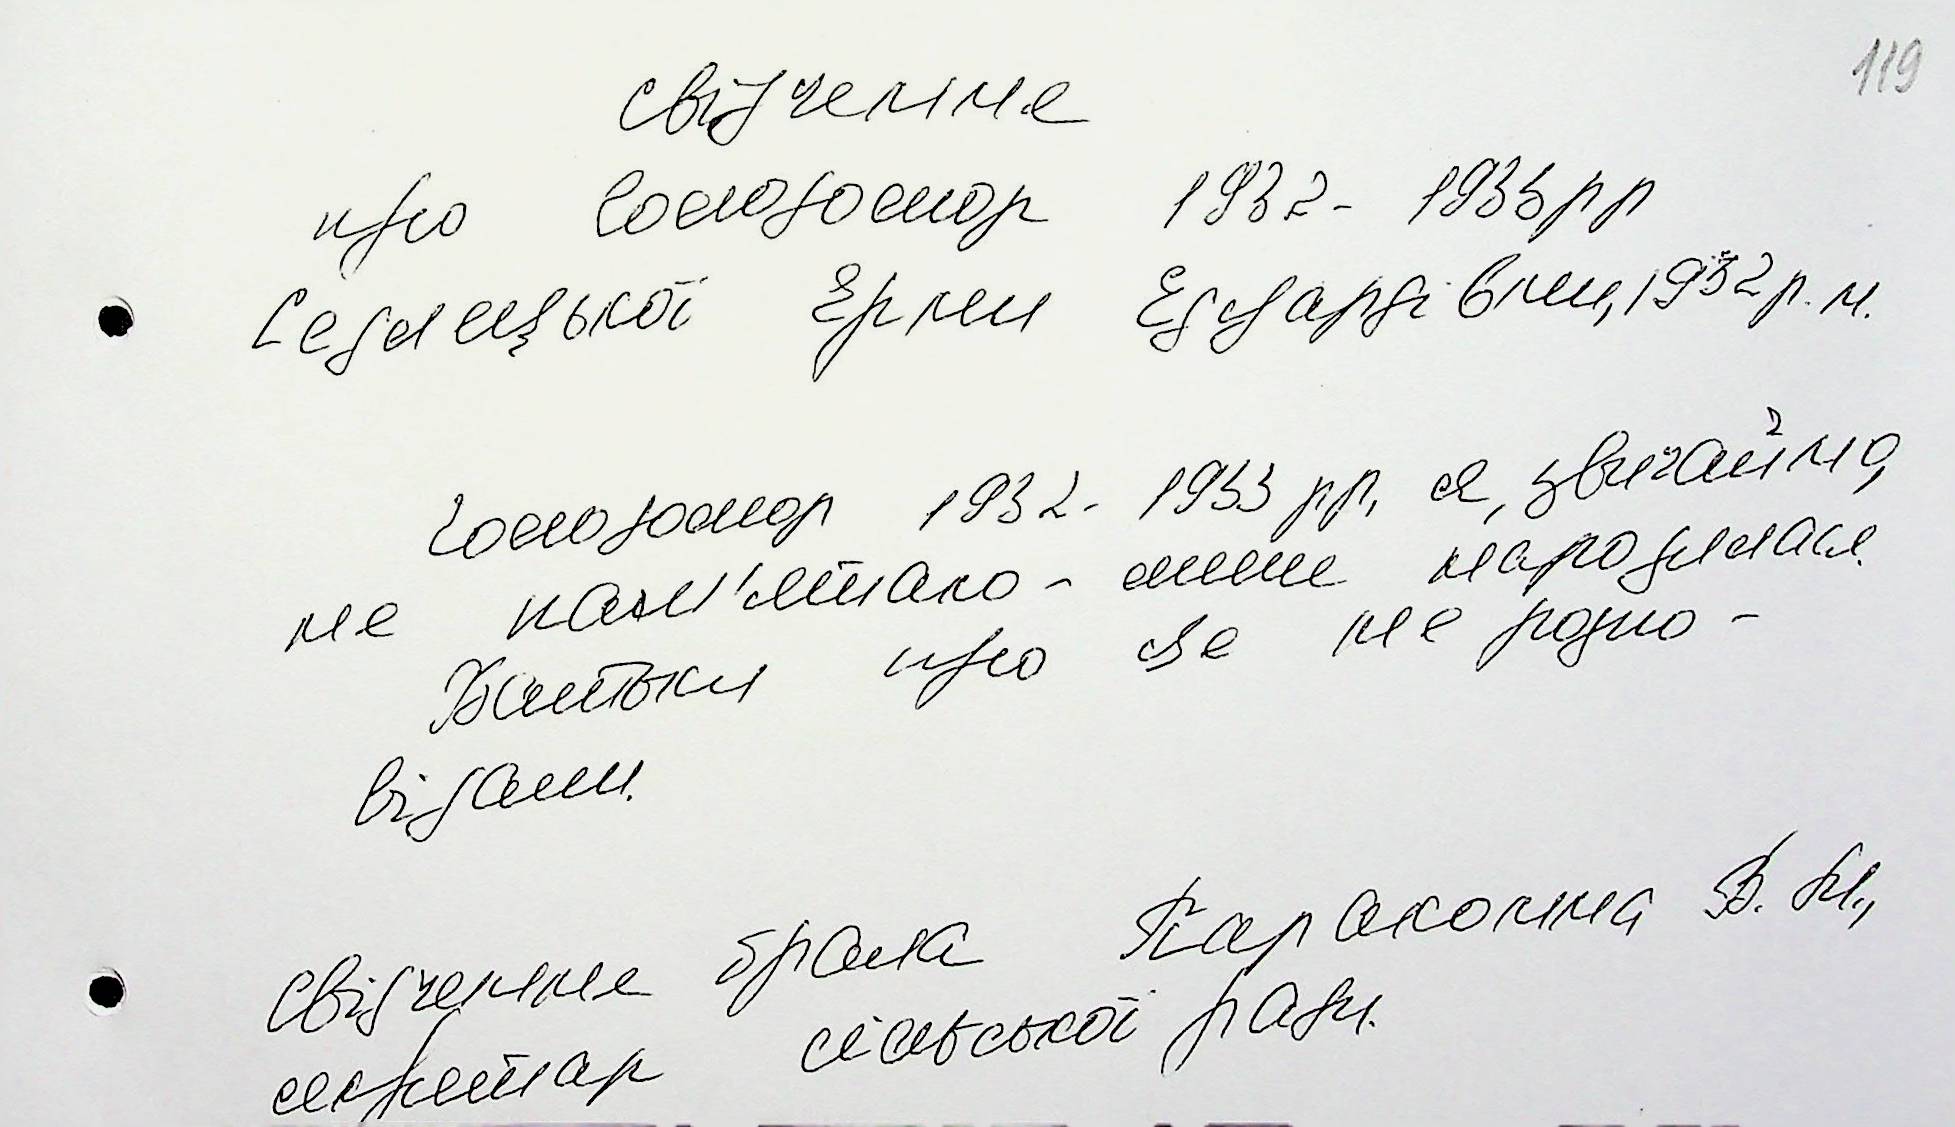 119
Свідчення
про Голодомор 1932-1933рр
Седлецької Ерни Едуардівни, 1932 р.н.
Голодомор 1932-1933 рр. я, звичайно,
не пам'ятаю - лише народилася.
Батьки про це не розпо-
відали.
Свідчення брала Параконна В. М.,
секретар сільської ради.